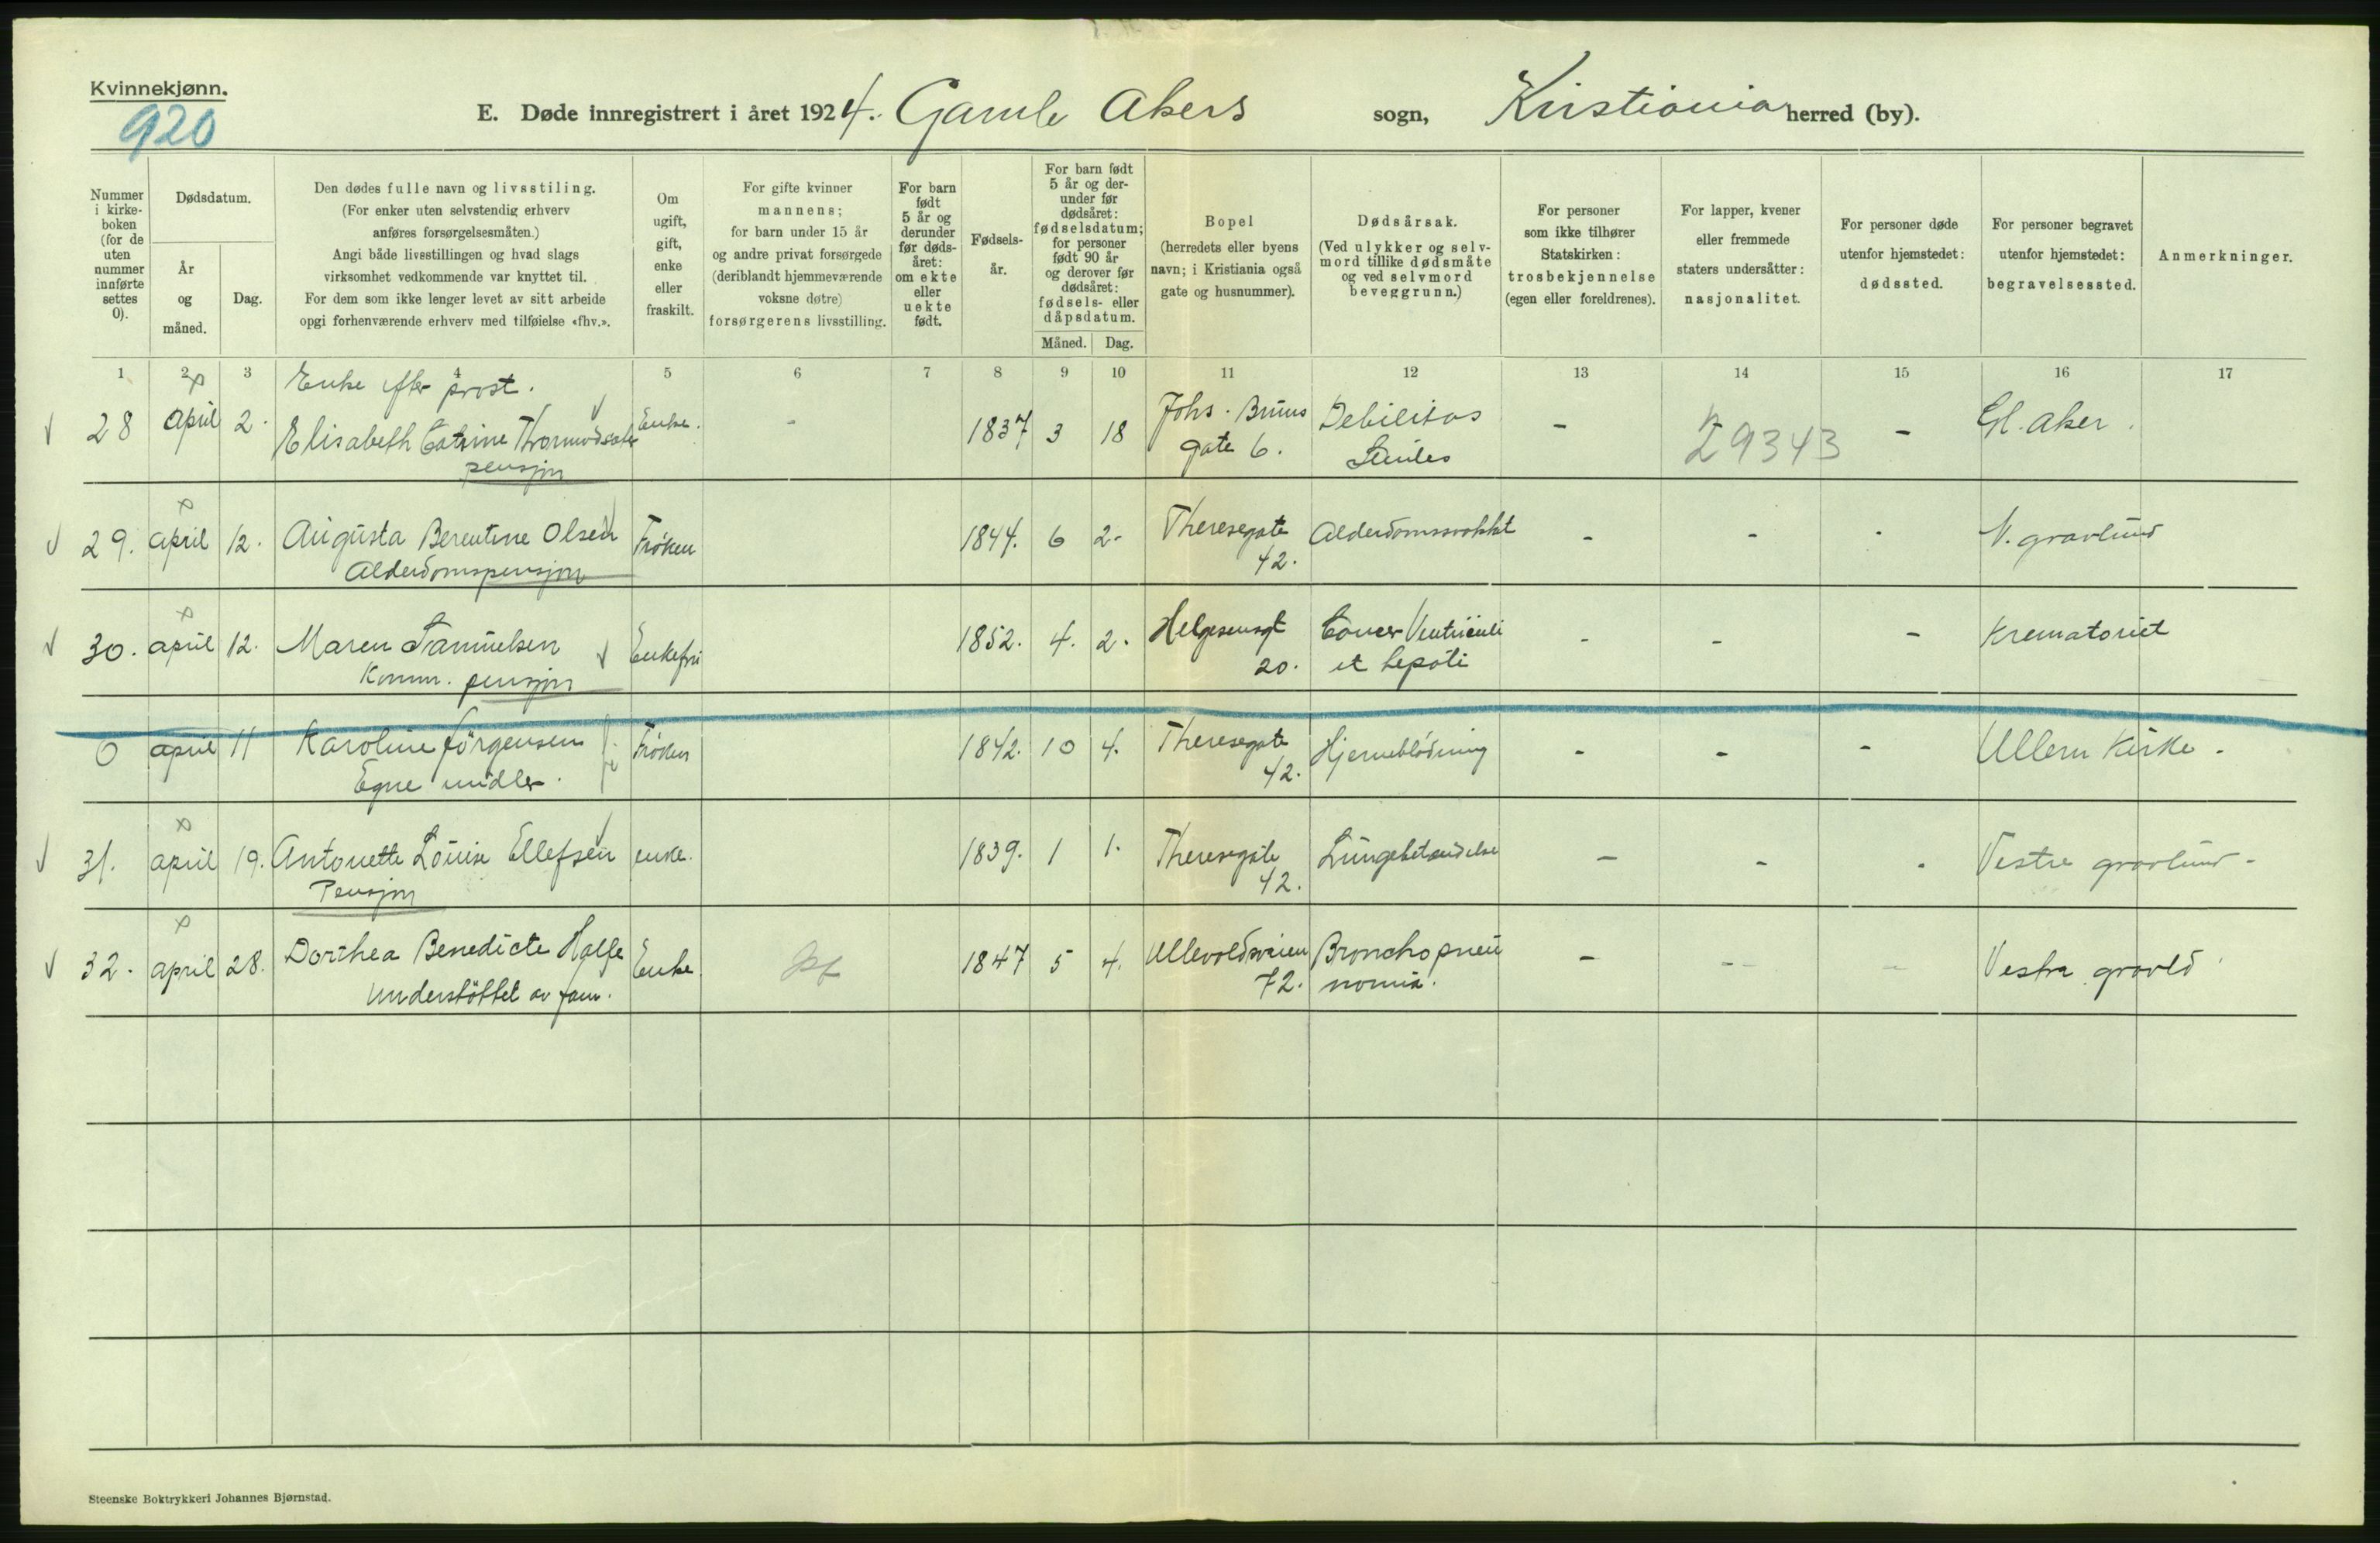 Kvinnekjønn.
920
E. Døde innregistrert i året 1924. Gamle Akers sogn, Kristiania herred (by).
Nummer i kirke-boken (for de uten nummer innførte settes 0).
Dødsdatum.
År og måned.
Dag.
Den dødes fulle navn og livsstiling.
(For enker uten selvstendig erhverv
anføres forsørgelsesmåten.)
Angi både livsstillingen og hvad slags
virksomhet vedkommende var knyttet til.
For dem som ikke lenger levet av sitt arbeide
opgi forhenværende erhverv med tilføielse «fhv.».
Om ugift, gift, enke eller fraskilt.
For gifte kvinner
mannens;
for barn under 15 år
og andre privat forsørgede
(deriblandt hjemmeværende
voksne døtre)
forsørgerens livsstilling.
For barn født 5 år og derunder før døds-året: om ekte eller uekte født.
Fødsels-år.
For barn født 5 år og der-under før dødsåret: fødselsdatum; for personer født 90 år og derover før dødsåret: fødsels- eller dåpsdatum.
Måned. Dag.
Bopel
(herredets eller byens
navn; i Kristiania også
gate og husnummer).
Dødsårsak.
(Ved ulykker og selv-
mord tillike dødsmåte
og ved selvmord
beveggrunn.)
For personer
som ikke tilhører
Statskirken:
trosbekjennelse
(egen eller foreldrenes).
For lapper, kvener
eller fremmede
staters undersåtter:
nasjonalitet.
For personer døde
utenfor hjemstedet:
dødssted.
For personer begravet
utenfor hjemstedet:
begravelsessted.
Anmerkninger.
1 2 3 4 5 6 7 8 9 10 11 12 13 14 15 16 17
Enke efter prost.
28 april 2. Elisabeth Catrine Enke. - 1837 3 18 Johs. Bruns Debilitas - 29343 - Gl. Aker.
pensjon gate 6. Senilis
29. april 12. Augusta Berentine Olsen Frøken 1844. 6 2. Theresegate Alderdomssvakhet - - - V. gravlund
Alderdomspensjon 42.
30. april 12. Maren Samuelsen 1852. 4. 2. Helgesensgt Cancer Ventriculi - - - Krematoriet
Komm. pensjon 20. et hepati
0 april 11 Karoline Jørgensen Frøken 1842. 10 4. Theresegate Hjerneblødning - - - Ullern Kirke.
Egne midler. 42.
31. april 19. Antonette Louise Ellefsen enke. 1839. 1 1. Theresegate Lungebetændelse - - - Vestre gravlund-
Pensjon 42.
32. april 28. Dorthea Benedicte Enke 1847 5 4. Ullevoldsveien Bronchopneu - - - Vestre gravld
Understøttet av fam. 72. monia.
Steenske Boktrykkeri Johannes Bjørnstad.